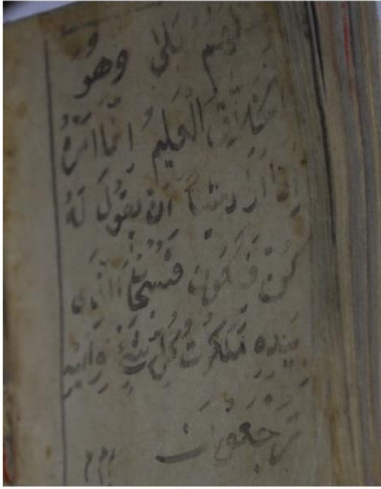 مثلهم بلى وهو
الخلاق العليم انما امره
اذا اراد شيئا ان يقول له
كن فيكون فسبحان الذي
بيده ملكوت كل شيء واليه
ترجعون